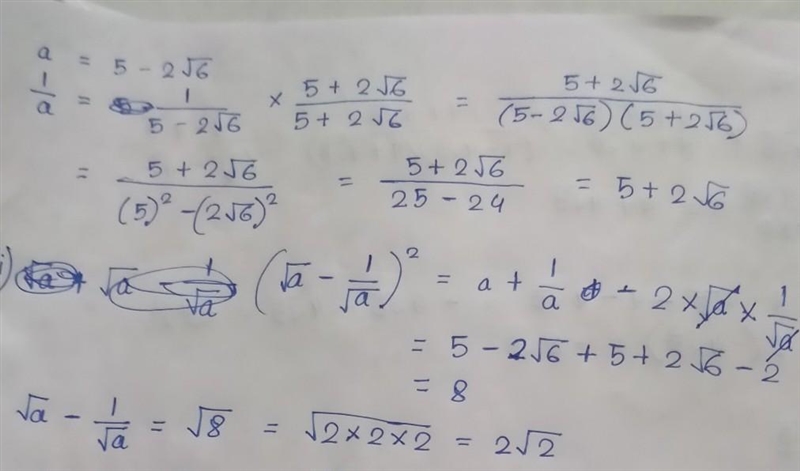 a = 5 - 2√6
1/a = 1/(5 - 2√6) × (5 + 2√6)/(5 + 2√6) = (5 + 2√6)/((5 - 2√6)(5 + 2√6))
= (5 + 2√6)/((5)² - (2√6)²) = (5 + 2√6)/(25 - 24) = 5 + 2√6
i) √a 1/√a (√a - 1/√a)² = a + 1/a - 2 × √a × 1/√a
= 5 - 2√6 + 5 + 2√6 - 2
= 8
√a - 1/√a = √8 = √(2×2×2) = 2√2